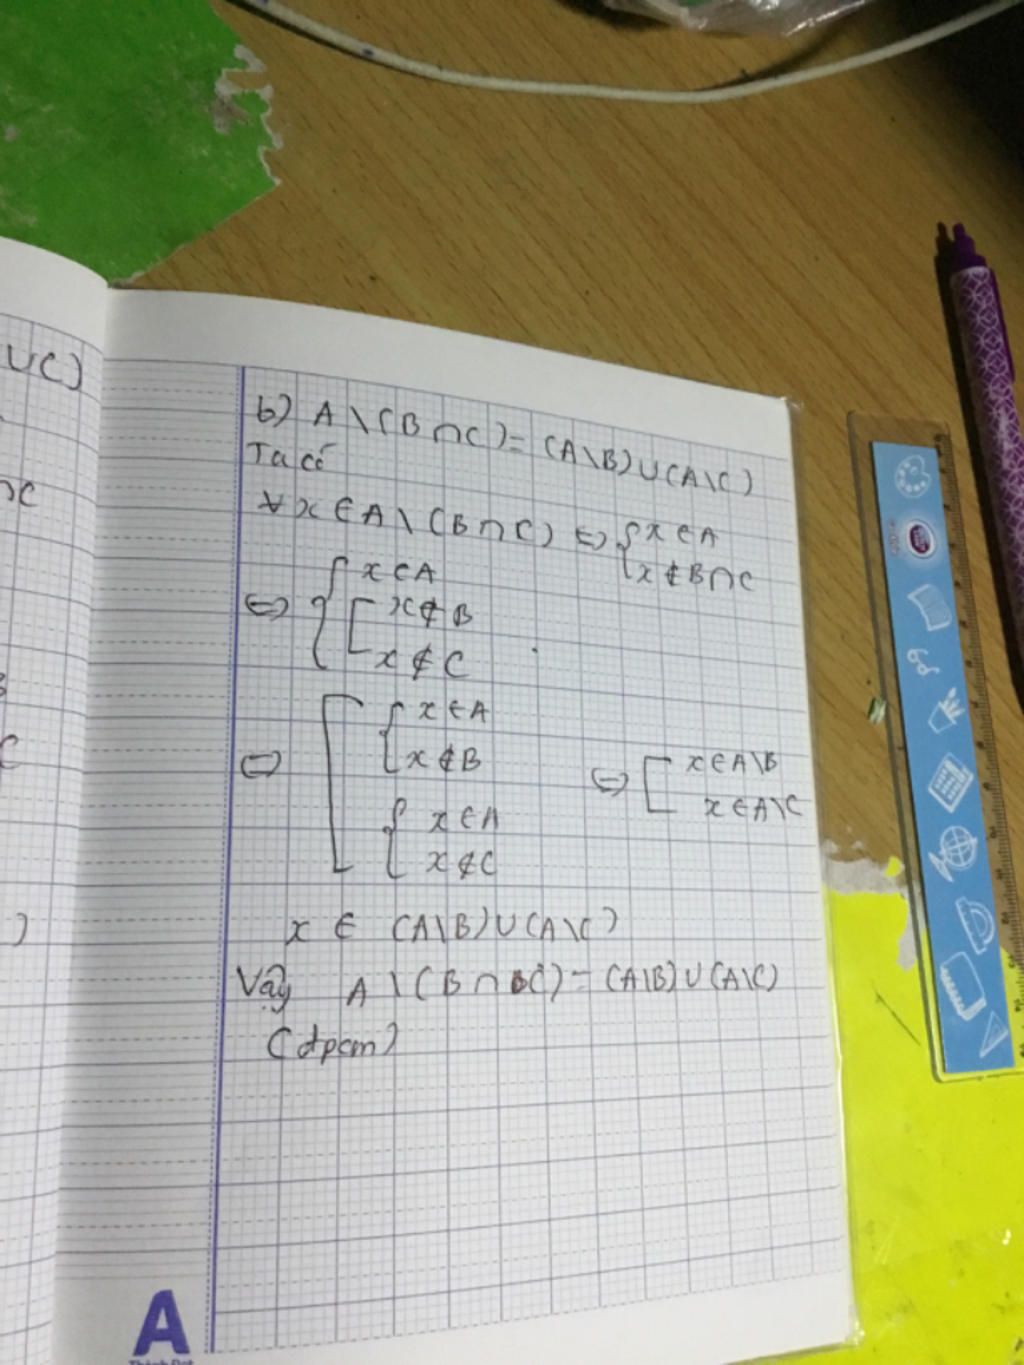 UC)
∩C
C
)
b) A \ (B∩C) = (A\B)∪(A\C)
Ta có
∀x∈A \ (B∩C) ⇔ { x∈A
x∉B∩C
⇔ { x∈A
[ x∉B
x∉C
⇔ [ { x∈A
x∉B
{ x∈A
x∉C
⇔ [ x∈A\B
x∈A\C
x ∈ (A\B)∪(A\C)
Vậy A \ (B∩C) = (A\B)∪(A\C)
(đpcm)
A